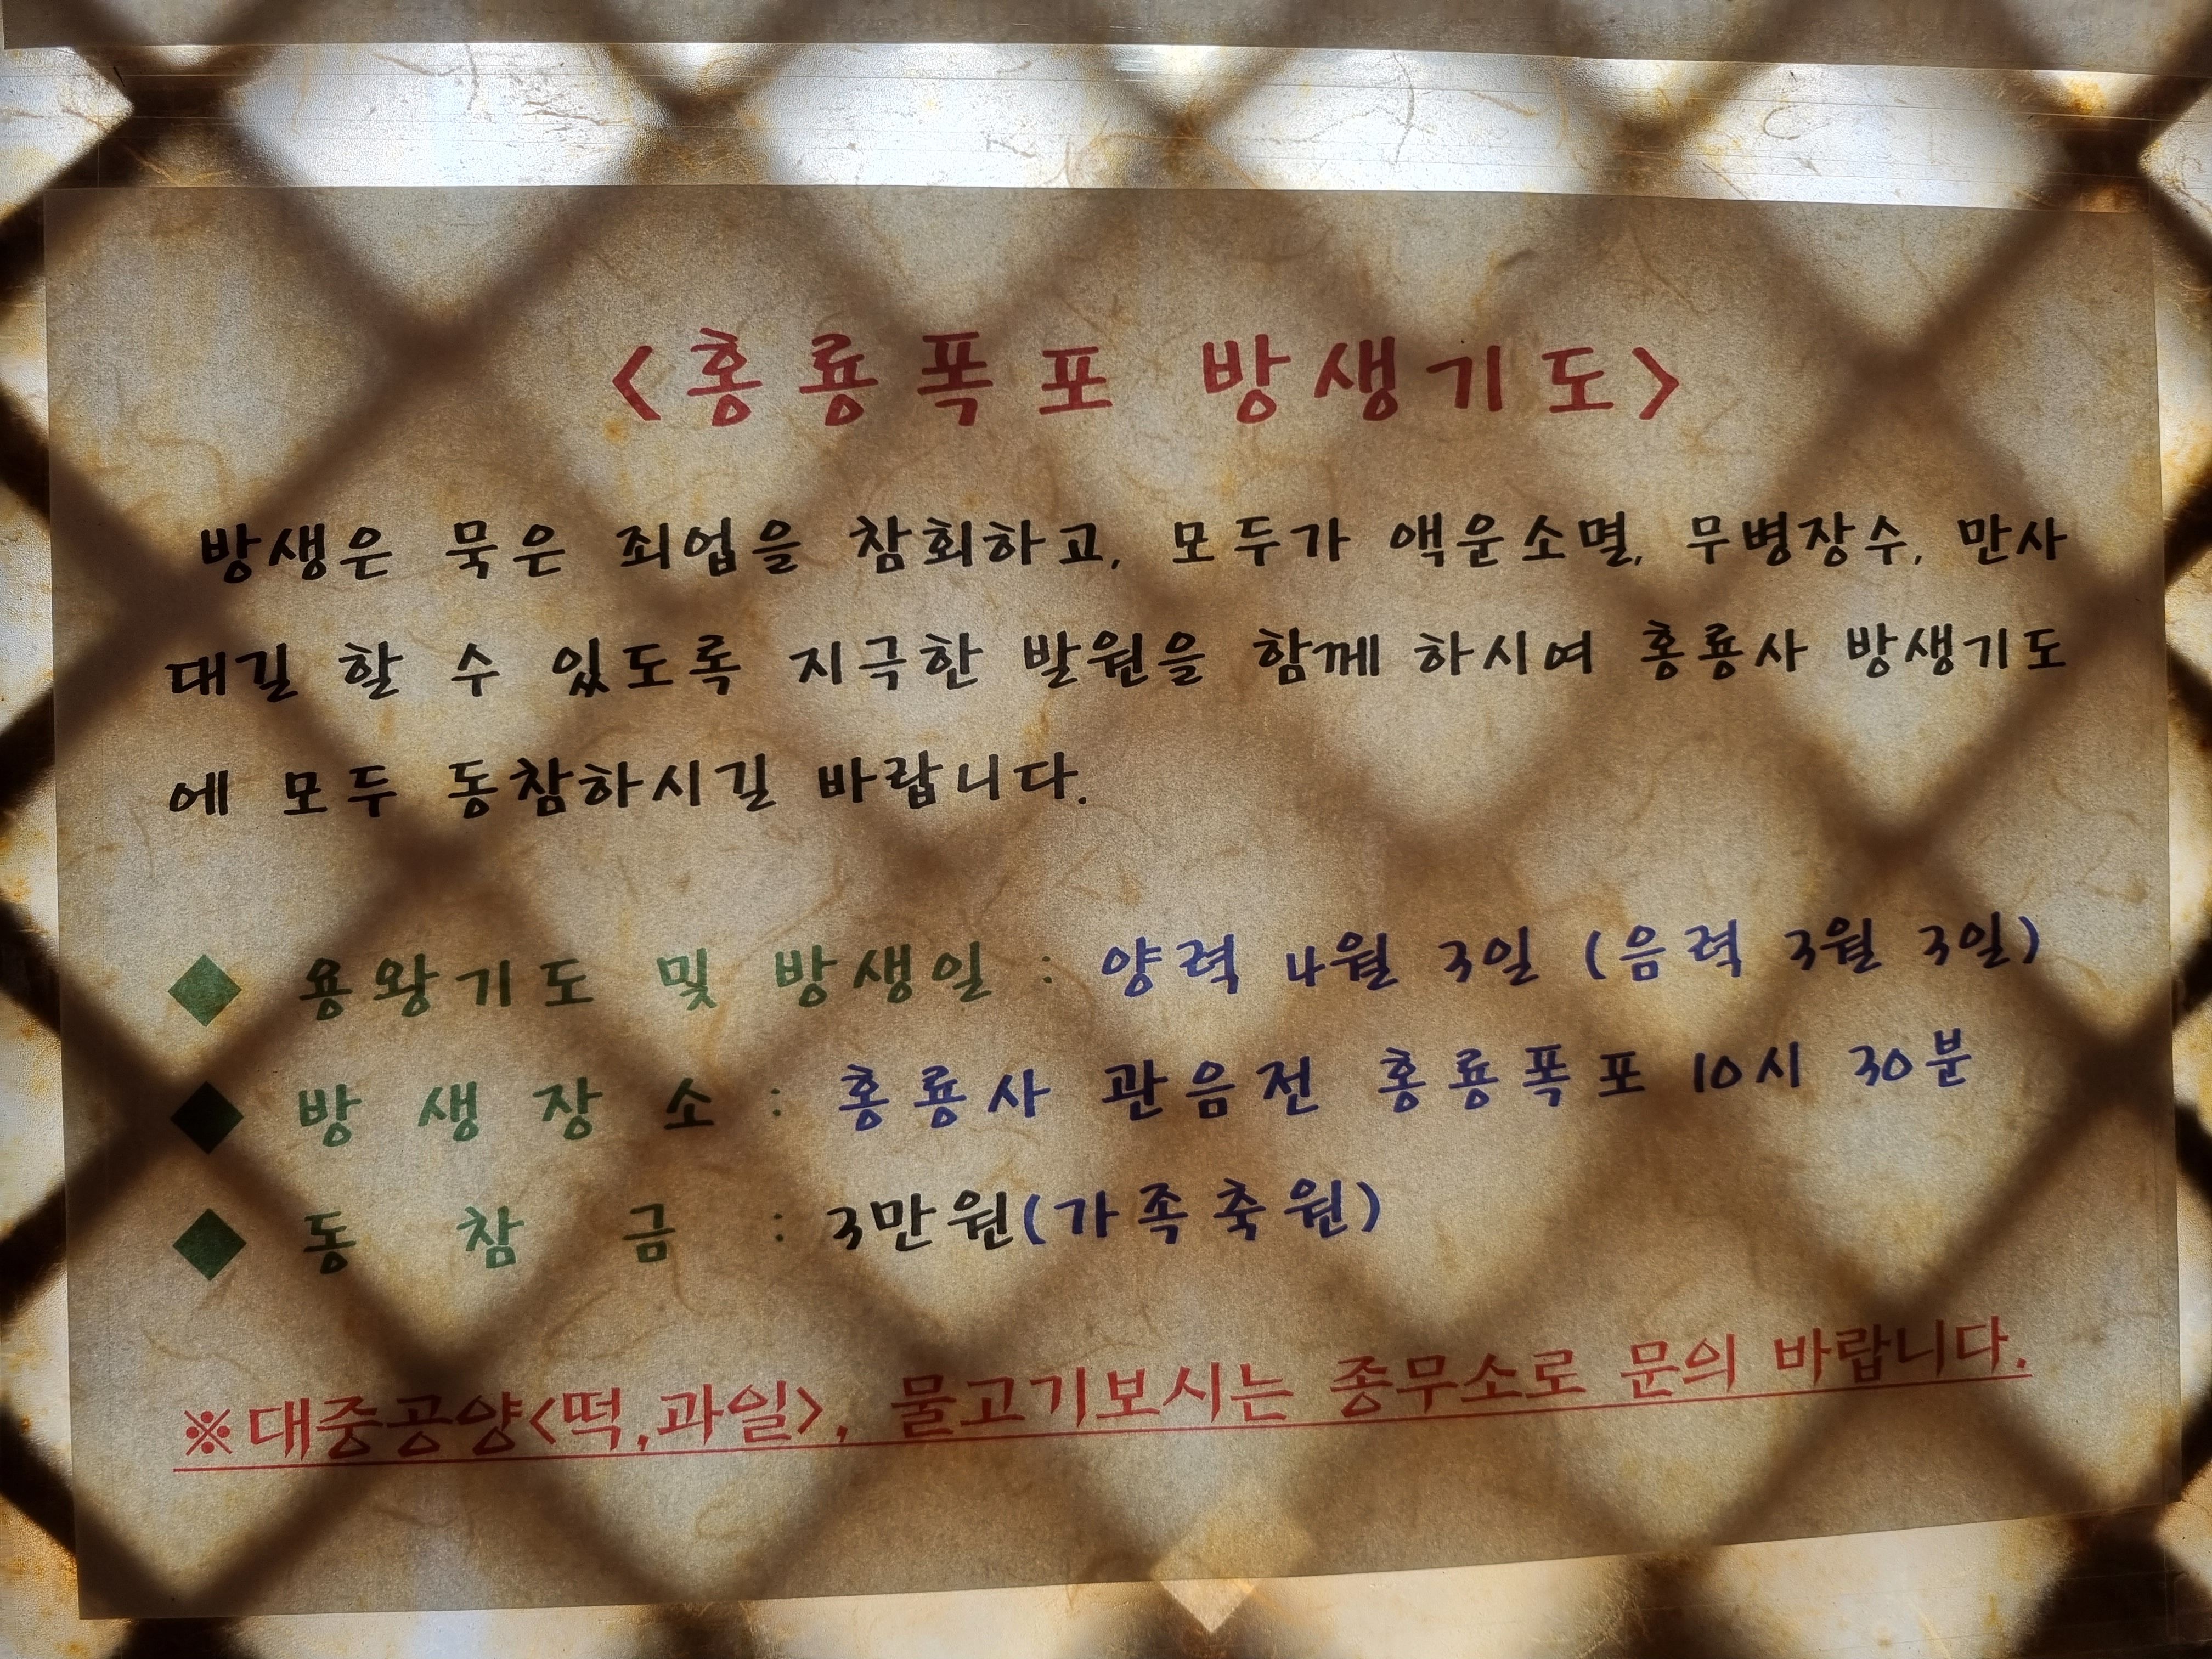 <홍룡폭포 방생기도>
방생은 묵은 죄업을 참회하고, 모두가 액운소멸, 무병장수, 만사
대길 할 수 있도록 지극한 발원을 함께 하시여 홍룡사 방생기도
에 모두 동참하시길 바랍니다.
◆ 용왕기도 및 방생일 : 양력 4월 3일 (음력 3월 3일)
◆ 방 생 장 소 : 홍룡사 관음전 홍룡폭포 10시 30분
◆ 동 참 금 : 3만원(가족축원)
※대중공양<떡,과일>, 물고기보시는 종무소로 문의 바랍니다.